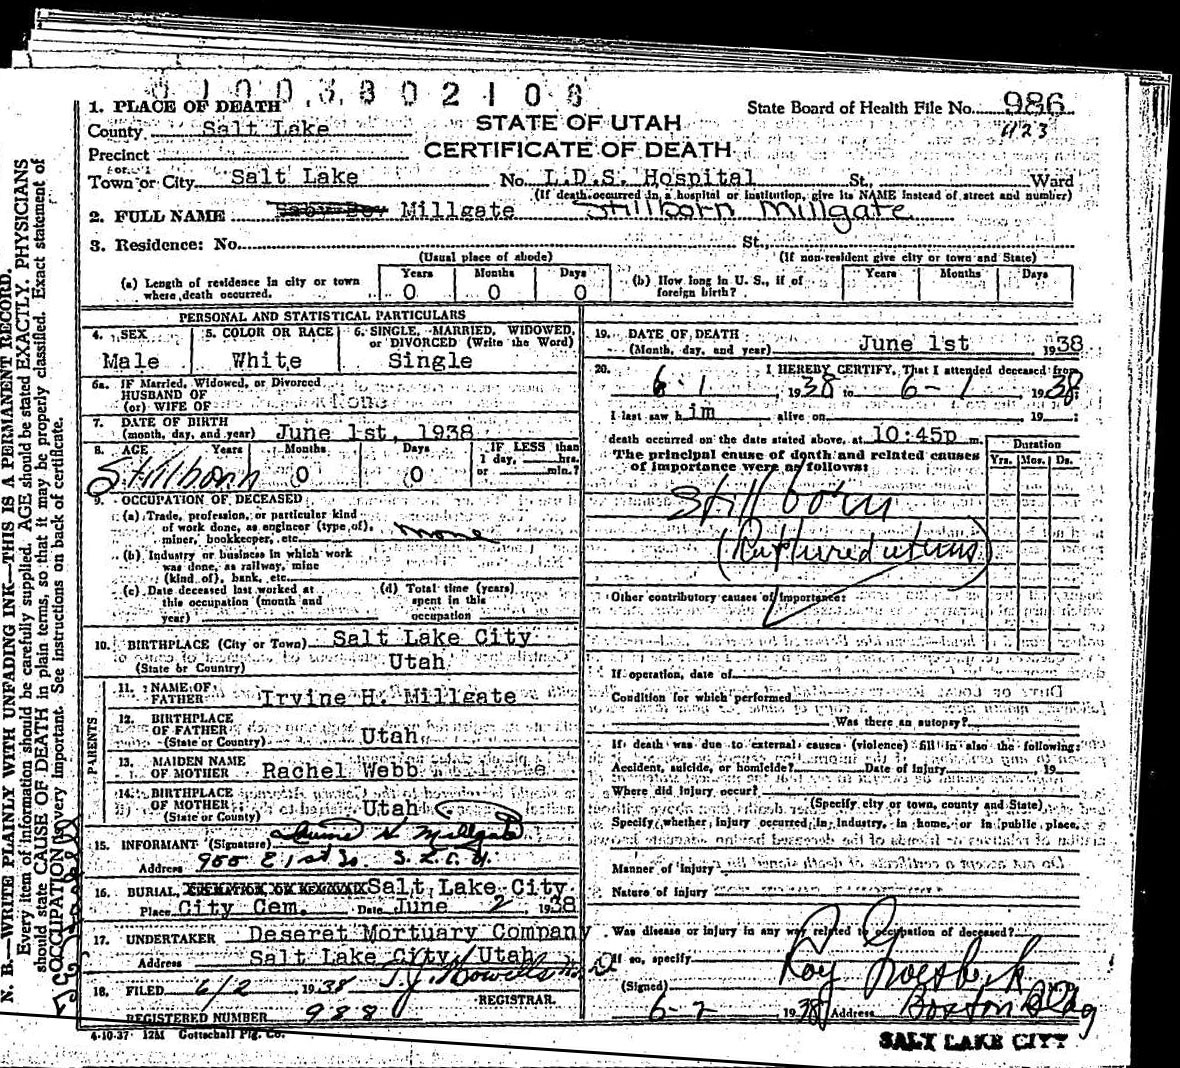 1. PLACE OF DEATH
State Board of Health File No. 986
County Salt Lake
STATE OF UTAH
423
Precinct
CERTIFICATE OF DEATH
Town or City Salt Lake No. L.D.S. Hospital St., Ward
(If death occurred in a hospital or institution, give its NAME instead of street and number)
2. FULL NAME Baby Boy Millgate Stillborn Millgate
3. Residence: No. St.,
(Usual place of abode) (If non-resident give city or town and State)
(a) Length of residence in city or town where death occurred. Years 0 Months 0 Days 0
(b) How long in U. S., if of foreign birth? Years Months Days
PERSONAL AND STATISTICAL PARTICULARS
4. SEX Male
5. COLOR OR RACE White
6. SINGLE, MARRIED, WIDOWED, or DIVORCED (Write the Word) Single
6a. IF Married, Widowed, or Divorced
HUSBAND OF
(or) WIFE OF None
7. DATE OF BIRTH
(month, day, and year) June 1st, 1938
8. AGE Years Stillborn Months 0 Days 0 IF LESS than 1 day, hrs. or min.?
9. OCCUPATION OF DECEASED
(a) Trade, profession, or particular kind
of work done, as engineer (type of),
miner, bookkeeper, etc. none
(b) Industry or business in which work
was done, as railway, mine
(kind of), bank, etc.
(c) Date deceased last worked at
this occupation (month and
year)
(d) Total time (years)
spent in this
occupation
10. BIRTHPLACE (City or Town) Salt Lake City
(State or Country) Utah
PARENTS
11. NAME OF FATHER Irvine H. Millgate
12. BIRTHPLACE OF FATHER
(State or Country) Utah
13. MAIDEN NAME OF MOTHER Rachel Webb
14. BIRTHPLACE OF MOTHER
(State or Country) Utah
15. INFORMANT (Signature) Irvine H. Millgate
Address 955 E 1st So. S.L.C. U.
16. BURIAL, CREMATION, OR REMOVAL Salt Lake City
Place City Cem. Date June 2, 1938
17. UNDERTAKER Deseret Mortuary Company
Address Salt Lake City, Utah
18. FILED 6/2 1938 T.J. Howells
REGISTRAR.
REGISTERED NUMBER 988
4-10-37 12M Gottschall Ptg. Co.
19. DATE OF DEATH
(Month, day, and year) June 1st 1938
20. I HEREBY CERTIFY, That I attended deceased from
6-1, 1938 to 6-1, 1938
I last saw him alive on 19 ;
death occurred on the date stated above, at 10:45p m.
The principal cause of death and related causes
of importance were as follows:
Duration
Yrs. Mos. Ds.
Stillborn
(Ruptured uterus)
Other contributory causes of importance:
If operation, date of
Condition for which performed
Was there an autopsy?
If death was due to external causes (violence) fill in also the following:
Accident, suicide, or homicide? Date of injury, 19
Where did injury occur?
(Specify city or town, county and State)
Specify whether injury occurred in industry, in home, or in public place.
Manner of injury
Nature of injury
Was disease or injury in any way related to occupation of deceased?
If so, specify
(Signed) Roy Groesbeck M. D.
6-2 1938 Address Boston Bldg
SALT LAKE CITY
N. B.—WRITE PLAINLY WITH UNFADING INK—THIS IS A PERMANENT RECORD.
Every item of information should be carefully supplied. AGE should be stated EXACTLY. PHYSICIANS
should state CAUSE OF DEATH in plain terms, so that it may be properly classified. Exact statement of
OCCUPATION is very important. See instructions on back of certificate.